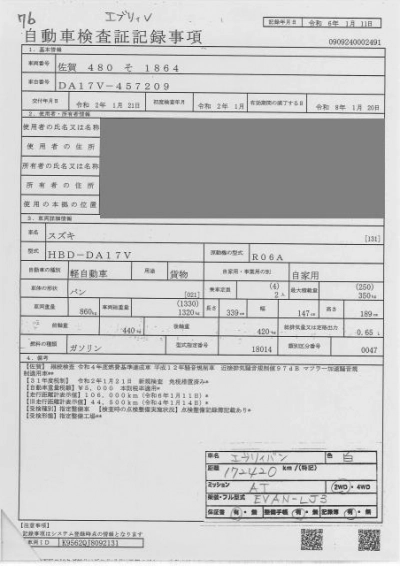 76
エブリィV
記録年月日 令和 6年 1月 11日
自動車検査証記録事項
0909240002491
1. 基本情報
車両番号 佐賀 480 そ 1864
車台番号 DA17V-457209
交付年月日 令和 2年 1月 21日 初度検査年月 令和 2年 1月 有効期間の満了する日 令和 8年 1月 20日
2. 使用者・所有者情報
使用者の氏名又は名称
使用者の住所
所有者の氏名又は名称
所有者の住所
使用の本拠の位置
3. 車両詳細情報
車名 スズキ [131]
型式 HBD-DA17V 原動機の型式 R06A
自動車の種別 軽自動車 用途 貨物 自家用・事業用の別 自家用
車体の形状 バン [021] 乗車定員 (4) 2人 最大積載量 (250) 350kg
車両重量 860kg 車両総重量 (1330) 1320kg 長さ 339cm 幅 147cm 高さ 189cm
前軸重 440kg 後軸重 420kg 総排気量又は定格出力 0.65 L
燃料の種類 ガソリン 型式指定番号 18014 類別区分番号 0047
4. 備考
【佐賀】 継続検査 令和4年度燃費基準達成車 平成12年騒音規制車 近接排気騒音規制値97dB マフラー加速騒音規制適用車**
【31年度税制】 令和2年1月21日 新規検査 免税措置済み*
【自動車重量税額】 ¥5,000 本則税率適用*
【走行距離計表示値】 106,000km (令和6年1月11日)*
【旧走行距離計表示値】 44,500km (令和4年1月14日)*
【受検種別】 指定整備車 【検査時の点検整備実施状況】 点検整備記録簿記載あり*
【受検形態】 指定整備工場**
車名 エブリィバン 色 白
距離 172420 km/(特記)
ミッション AT 2WD・4WD
保証書 有・無 整備手帳 有・無 記録簿 有・無
EVAN-LJ3
【注意事項】
記録事項はシステム登録時点の登録となります
車両ID K95620J8092131